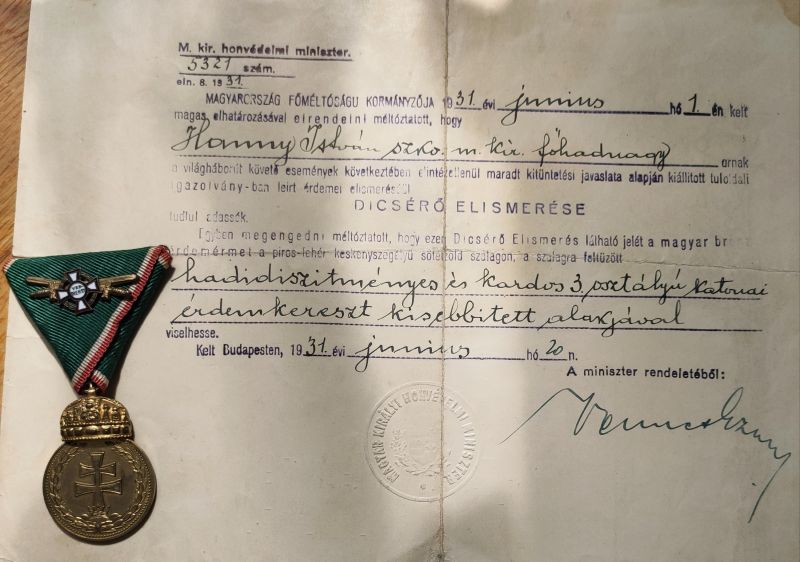 M. kir. honvédelmi miniszter.
5321 szám.
eln. 8. 1931.
MAGYARORSZÁG FŐMÉLTÓSÁGU KORMÁNYZÓJA 1931. évi junius hó 1 én kelt
magas elhatározásával elrendelni méltóztatott, hogy
Hanny István szkv. m. kir. főhadnagy urnak
a világháborút követő események következtében elintézetlenül maradt kitüntetési javaslata alapján kiállított tuloldali
igazolvány-ban leírt érdemei elismeréséül
DICSÉRŐ ELISMERÉSE
tudtul adassék.
Egyben megengedni méltóztatott, hogy ezen Dicsérő Elismerés látható jelét a magyar bronz
érdemérmet a piros-fehér keskenyszegélyű sötétzöld szalagon, a szalagra feltüzött
hadidiszitményes és kardos 3. osztályú katonai
érdemkereszt kisebbített alakjával
viselhesse.
Kelt Budapesten, 1931. évi junius hó 20 n.
A miniszter rendeletéből:
MAGYAR KIRÁLYI HONVÉDELMI MINISZTER